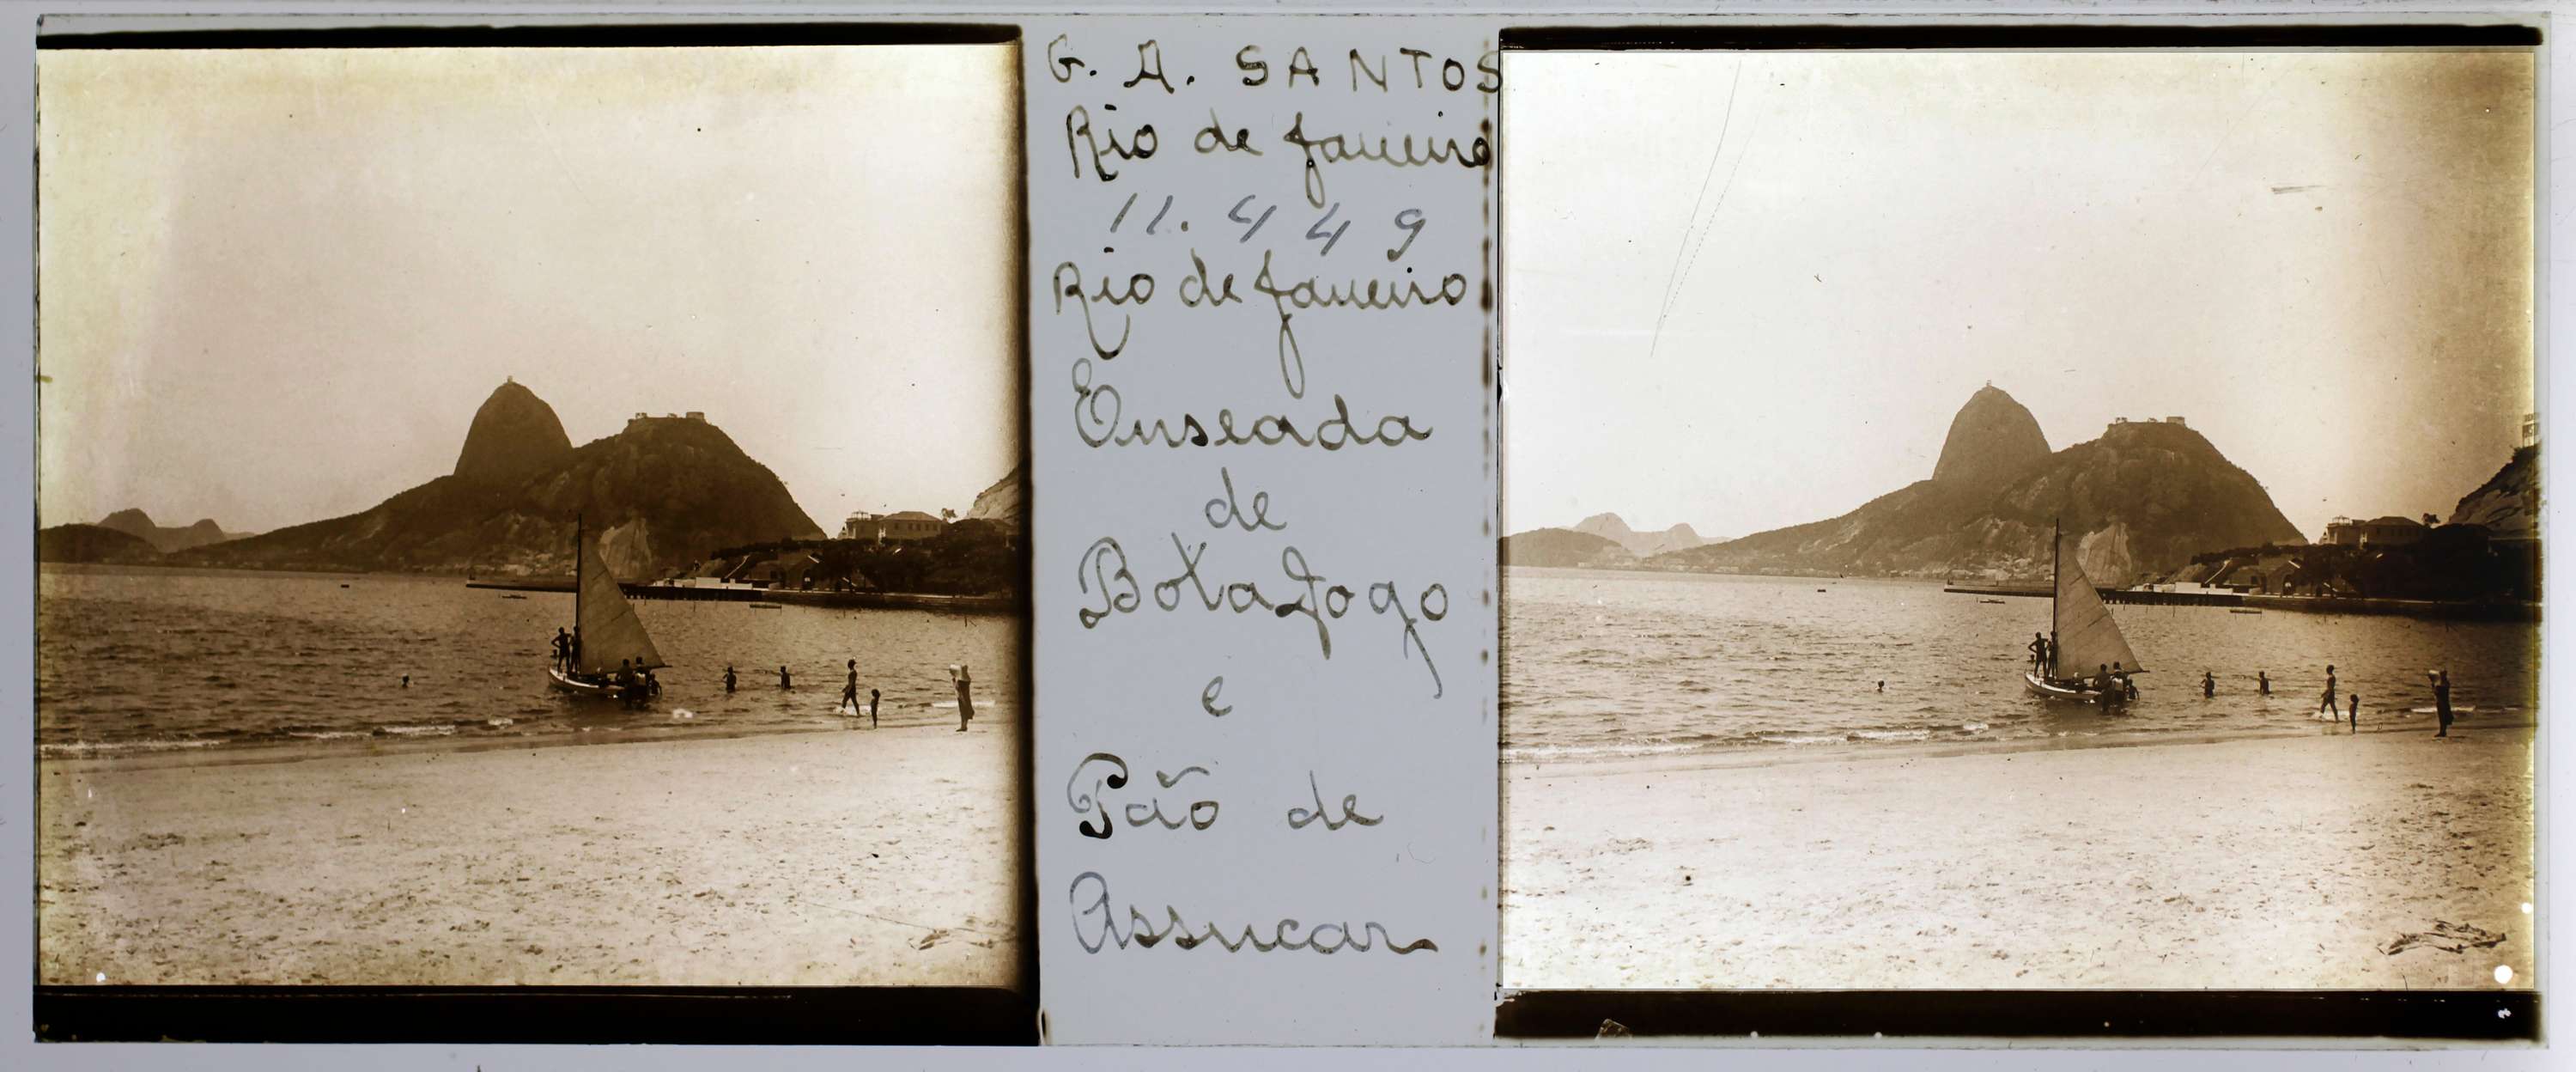 G. A. SANTOS
Rio de Janeiro
11. 4 4 9
Rio de Janeiro
Enseada
de
Botafogo
e
Pão de
Assucar